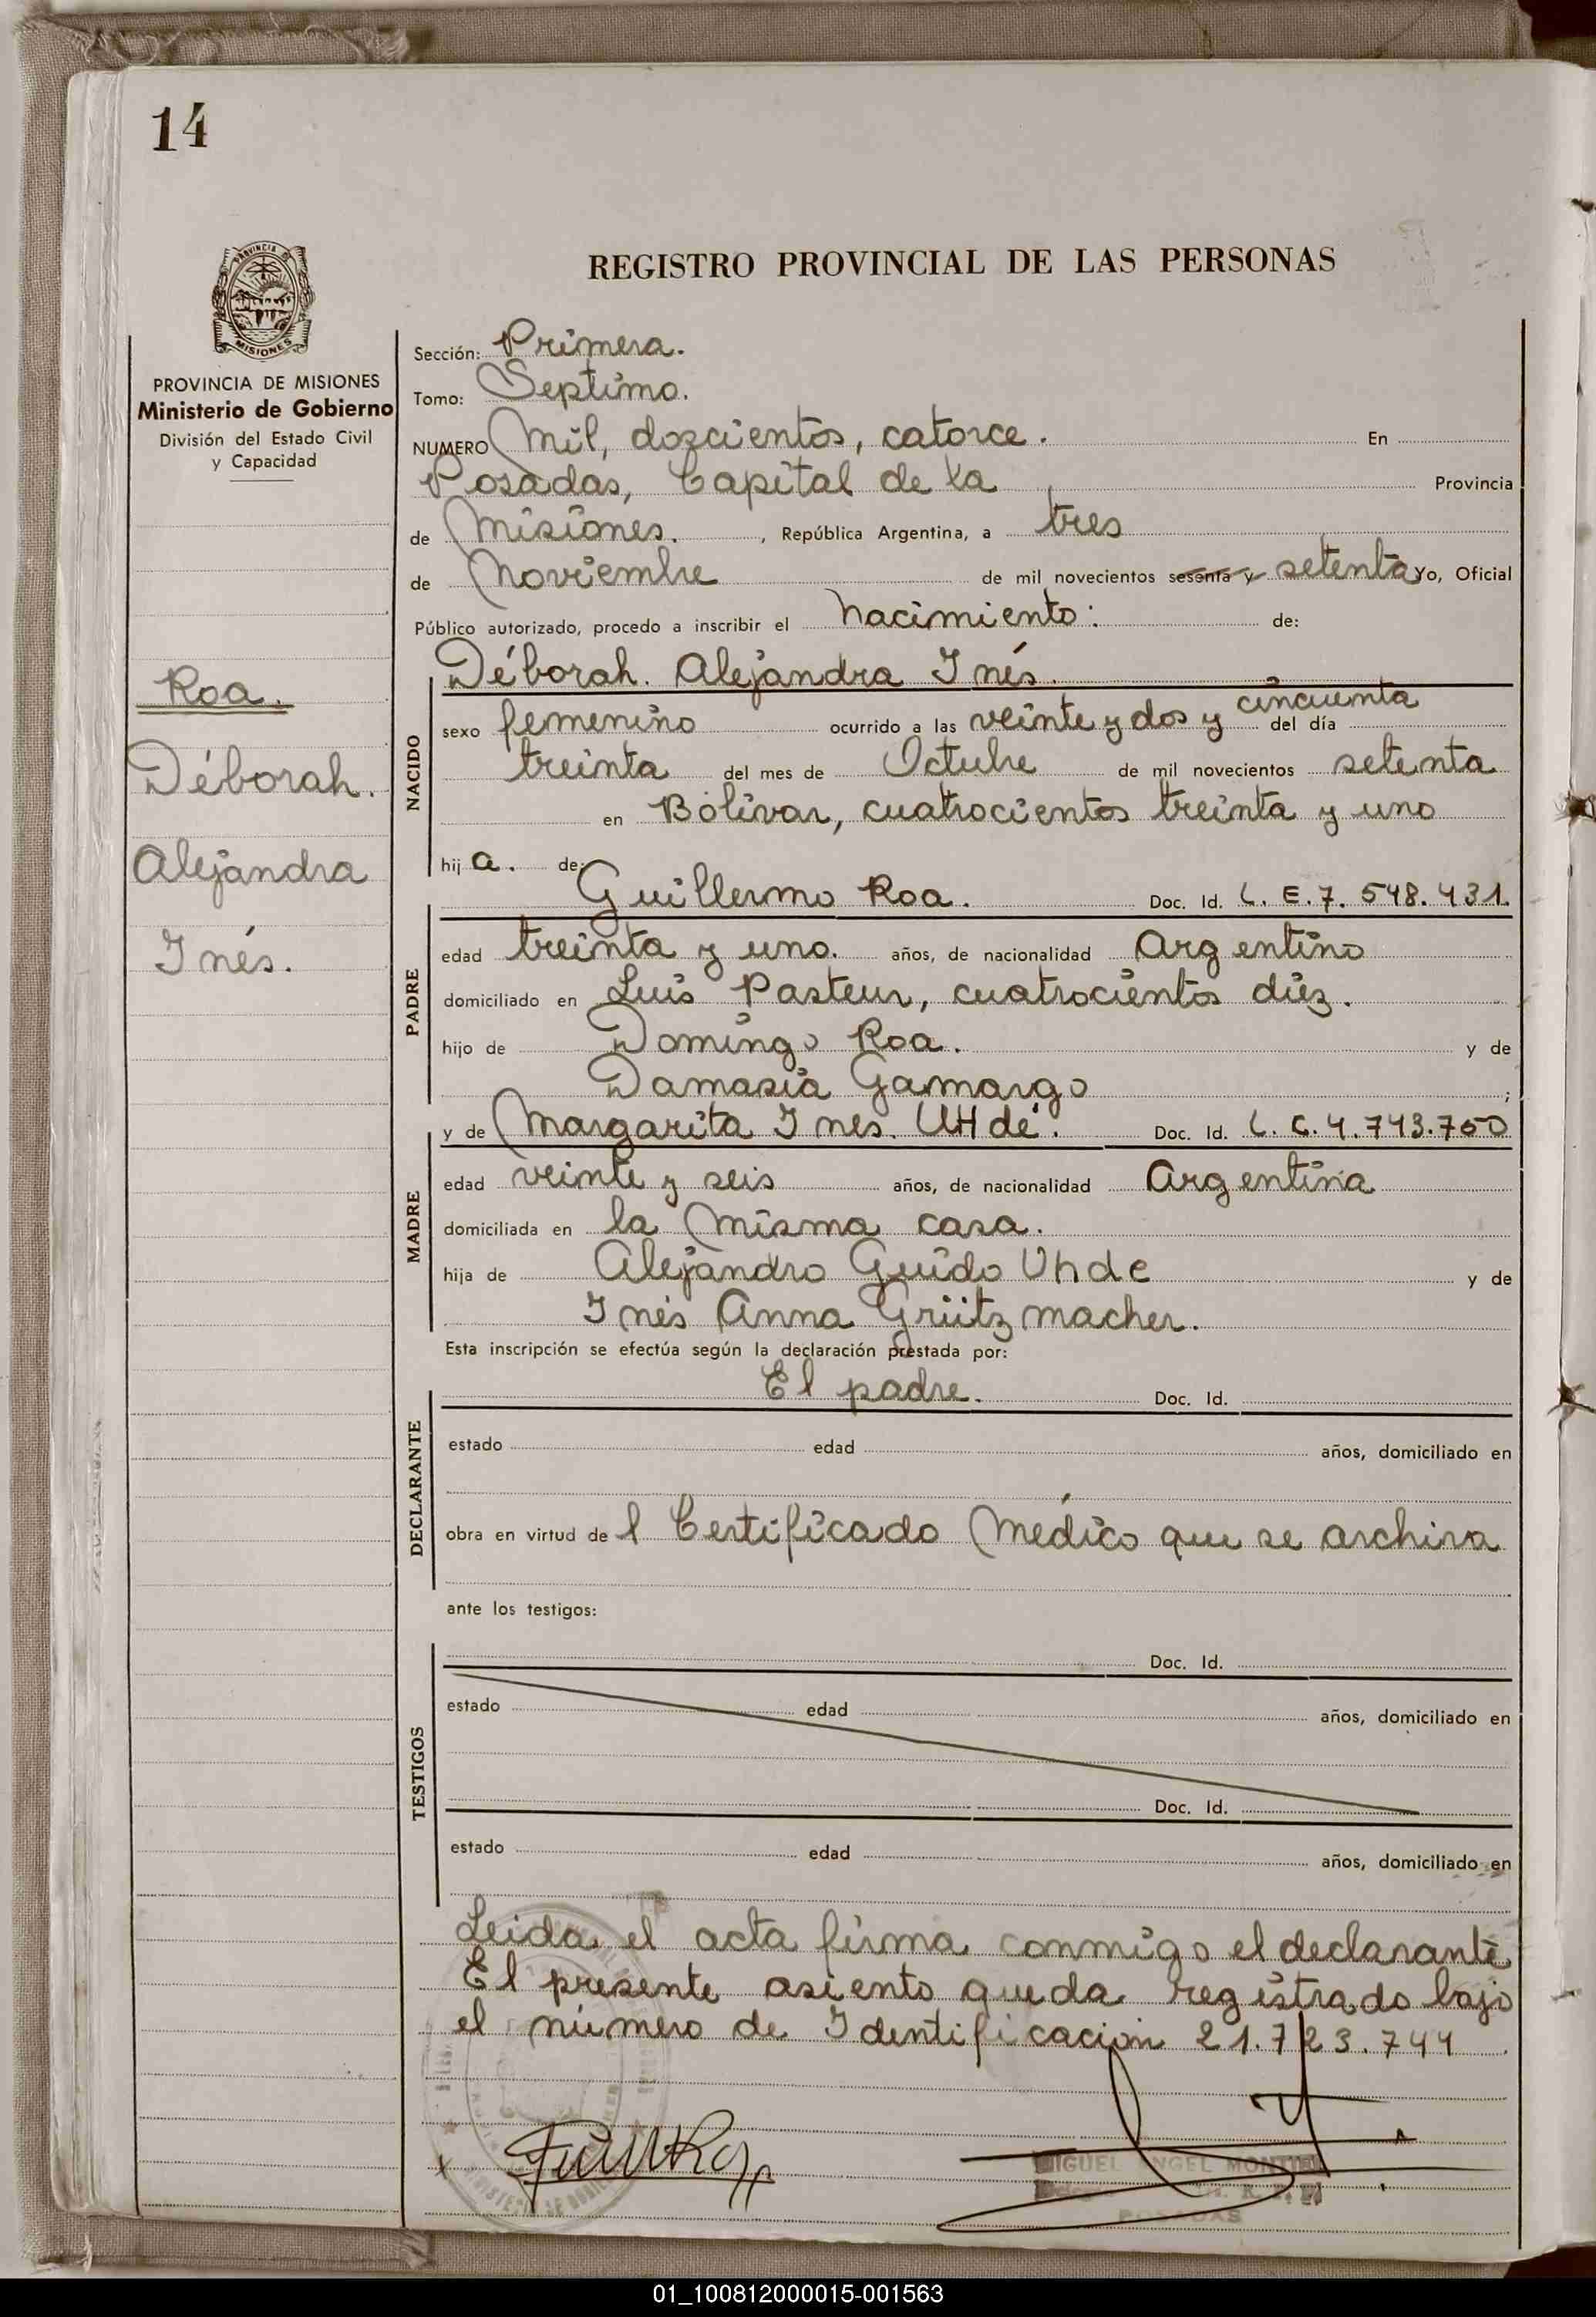 14
PROVINCIA
MISIONES
PROVINCIA DE MISIONES
Ministerio de Gobierno
División del Estado Civil
y Capacidad
Roa.
Déborah.
Alejandra
Inés.
REGISTRO PROVINCIAL DE LAS PERSONAS
Sección: Primera.
Tomo: Septimo.
NUMERO Mil, dozcientos, catorce. En
Posadas, Capital de la Provincia
de Misiones. , República Argentina, a tres
de Noviembre de mil novecientos sesenta y setenta Yo, Oficial
Público autorizado, procedo a inscribir el Nacimiento: de:
Déborah. Alejandra Inés.
NACIDO
sexo femenino ocurrido a las veinte y dos y cincuenta del día
treinta del mes de Octubre de mil novecientos setenta
en Bólivar, cuatrocientos treinta y uno
hij a. de:
Guillermo Roa. Doc. Id. L. E. 7. 548. 431.
PADRE
edad treinta y uno. años, de nacionalidad Argentino
domiciliado en Luis Pasteur, cuatrocientos diez.
hijo de Domingo Roa. y de
Damasia Gamargo ;
y de Margarita Ines. UHdé. Doc. Id. L. C. 4. 743. 750
MADRE
edad veinte y seis años, de nacionalidad Argentina
domiciliada en la misma casa.
hija de Alejandro Guido Uhde y de
Inés Anna Grütz macher.
Esta inscripción se efectúa según la declaración prestada por:
El padre. Doc. Id.
DECLARANTE
estado edad años, domiciliado en
obra en virtud de l Certificado Médico que se archiva
ante los testigos:
Doc. Id.
TESTIGOS
estado edad años, domiciliado en
Doc. Id.
estado edad años, domiciliado en
Leida el acta firma conmigo el declarante
El presente asiento queda registrado bajo
el número de Identificación 21.723.744
MIGUEL ANGEL MONTIEL
POSADAS
01_100812000015-001563